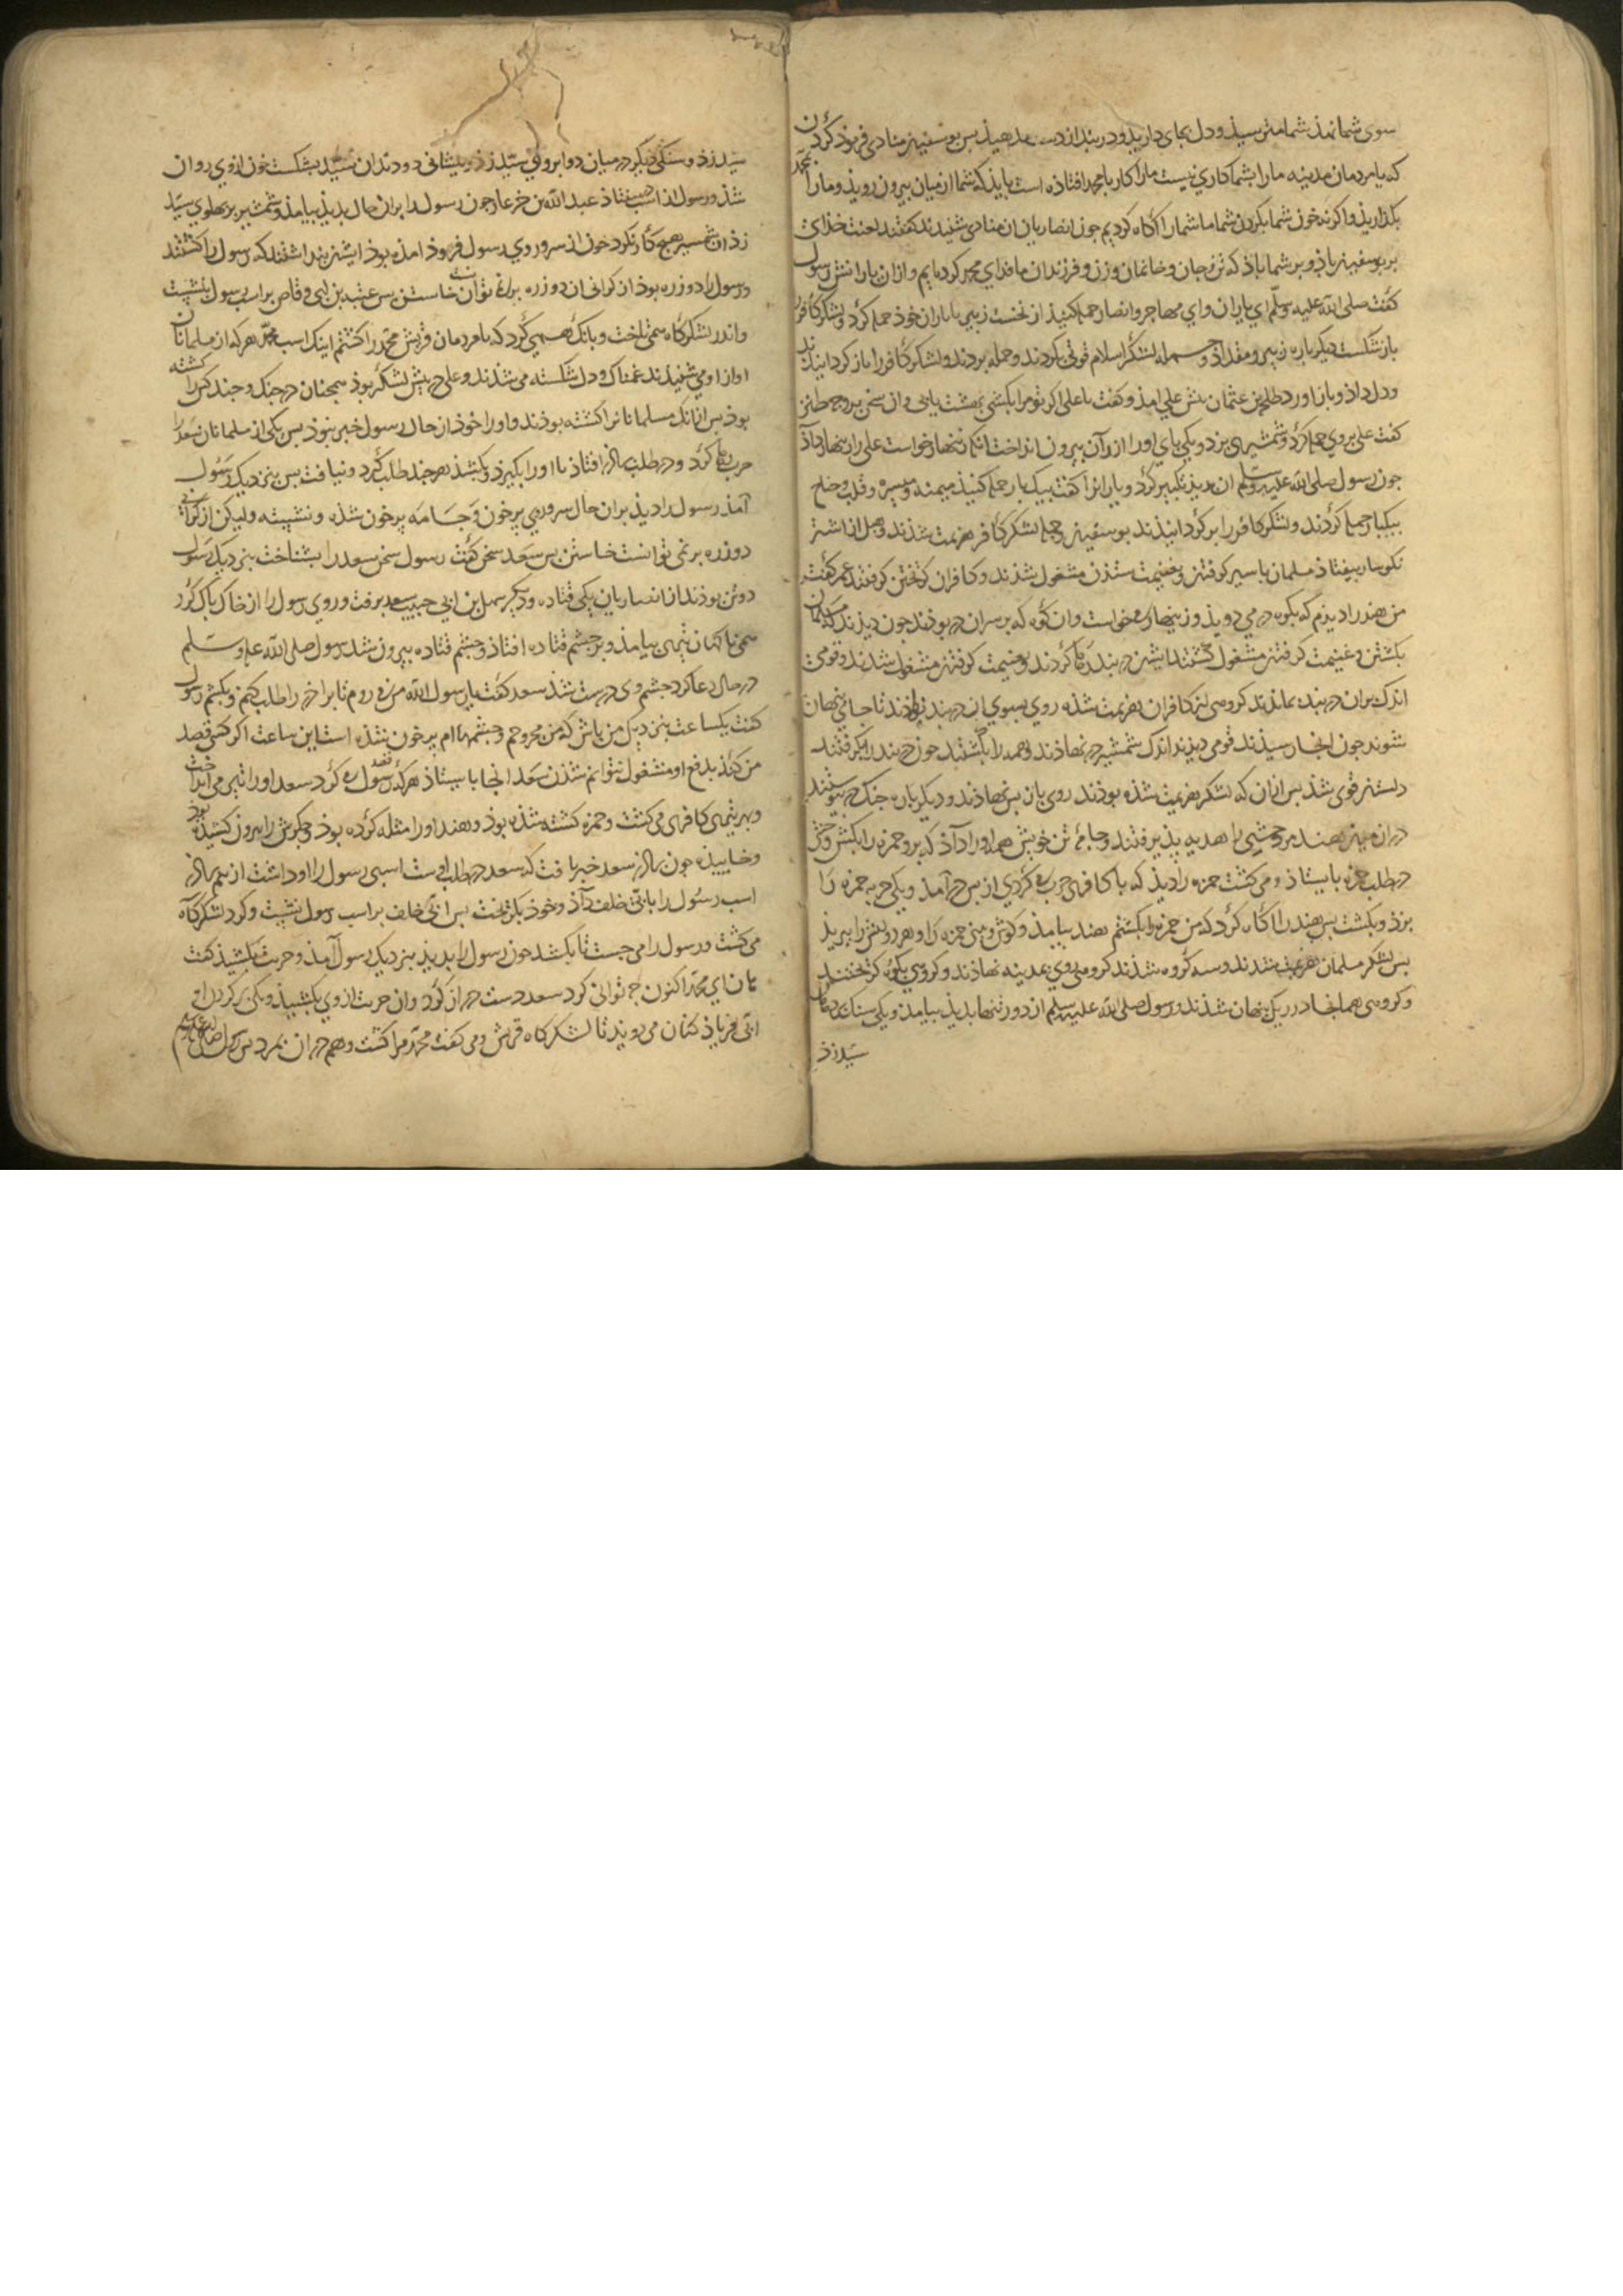 سوی شما نمذ شما مترسیذ و دل بجای داریذ و دربند از دست مدهیذ بس بوسفین منادی فرموذ کردن
که یا مردمان مدینه ما را بشما کاری نیست ما را کار با محمد افتاذه است بایذ که شما از میان بیرون رویذ و ما را بمحمد
بکذاریذ و اکرنه خون شما بکردن شما ما شما را آکاه کردیم جون انصاریان ان منادی شنیدند کفتند لعنت خذای
بر بوسفین باذ و بر شما باذ که تن و جان و خانمان و زن و فرزندان ما فدای محمد کرده ایم و ازان بارانش رسول
کفت صلی الله علیه وسلم ای یاران و ای مهاجر و انصار حمله کنیذ از نخست زبیر با یاران خوذ حمله کرد و لشکر کافر
بازشکست دیکر باره زبیر و مقداذ و جمله لشکر اسلام قوتی بکردند و حمله بردند و لشکر کافر را باز کردانیدند
ودل داذ و باز اورد طلحه بن عثمان بیش علی امذ و کفت یا علی اکر تو مرا بکشی بهشت یابی و ان سخن بر وجه طنز
کفت علی بر وی حمله کرد و شمشیری بزد و یکی بای او را از ران بیرون انداخت انکه زنهار خواست علی را زنهار داذ
جون رسول صلی الله علیه وسلم ان بدیذ تکبیر کرد و یارانرا کفت بیک بار حمله کنیذ میمنه و میسره و قلب و جناح
بیکبار حمله کردند و لشکر کافر را بر کردانیذند بوسفین و جمله لشکر کافر هزیمت شذند و هبل از اشتر
نکوسار بیفتاذ مسلمانان باسیر کرفتن و بغنیمت ستدن مشغول شذند و کافران کریختن کرفتند عمر کفت
من هندرا دیذم که بکوه درمی دویذ و زینهار می خواست و ان کوه که بر سران در بوذند جون دیذند که مسلمانان
بکشتن و غنیمت کرفتن مشغول کشتند ایشن در بند رها کردند و بغنیمت کرفتن مشغول شدند و قومی
اندک بران دربند بماندند کروهی از کافران بهزیمت شذه روی بسوی ان دربند نهاذند تا جایی بنهان
شوند جون انجا رسیذند قومی دیذند اندک شمشیر در نهاذند و همه را بکشتند جون در بند را بکرفتند
دلشن قوی شذ بس ایشان که لشکر بهزیمت شذه بوذند روی بان بس نهاذند و دیکر باره جنک در بیوستند
دران میان هند مر وحشی را هدیه پذیرفتند و جامه تن خویش همه او را داذ که برو حمزه را بکش وحشی
در طلب حمزه بایستاذ و می کشت حمزه را دیذ که با کافری حرب می کردی از بس در آمذ و یکی حربه حمزه را
بزذ و بکشت بس هند را آکاه کرد که من حمزه را بکشتم هند بیامذ و کوش و بینی حمزه را و هر دو لبش را ببریذ
بس لشکر مسلمانان هزیمت شدند و سه کروه شذند کروهی روی بمدینه نهاذند و کروهی بکوه کریختند
و کروهی هم انجا در ریک بنهان شذند و رسول صلی الله علیه وسلم از دور تنها بدیذ بیامذ و یکی سنک بر دهان
سید زذ
سید زذ و سنکی دیکر در میان دو ابروی سید زذ و بیشانی و دو دندان سید بشکست خون از وی روان
شذ و رسول از اسب بیفتاذ عبد الله بن جون رسول را بران حال بدیذ بیامذ و شمشیر بر بهلوی سید
زذ ان شمشیر هیج کار نکرد خون از سر و روی رسول فروذ امذه بوذ ایشن بنداشتند که رسول را کشتند
و رسول را دو زره بوذ از کرانی ان دو زره برنمی توانست خاستن بس عتبه بن ابی وقاص بر اسب رسول نشست
و اندر لشکرکاه همی تاخت و بانک همی کرد که یا مردمان قریش محمد را کشتم اینک اسب محمد هرکه از مسلمانان
اواز او می شنیدند غمناک و دل شکسته می شذند و علی در بیش لشکر بوذ همجنان در جنک و جند کس را کشته
بوذ بس ازانک مسلمانانرا کشته بوذند و او را خوذ از حال رسول خبر نبوذ بس یکی از مسلمانان سعد را
حرب رها کرد و در طلب افتاذ تا او را بکیرذ و بکشذ هرجند طلب کرد و نیافت بس بنزدیک رسول
آمذ رسول را دیذ بران حال سر و روی برخون و جامه برخون شذه و نشسته ولیکن از کرانی
دو زره برنمی توانست خاستن بس سعد سخن کفت رسول سخن سعد را بشناخت بنزدیک رسول
دو تن بوذند از انصاریان یکی قتاده و دیکر سهل بن ابی حبیب سعد برفت و روی رسول را از خاک پاک کرد
همی ناکهان تیری بیامذ و بر جشم قتاده افتاذ و جشم قتاده بیرون شد رسول صلی الله علیه وسلم
در حال دعا کرد جشم وی درست شذ سعد کفت یا رسول الله من می روم تا برادر را طلب کنم و بکشم رسول
کفت یکساعت بنزدیک من باش که من مجروحم و جشمهاام برخون شذه است این ساعت اکر کسی قصد
من کنذ بدفع او مشغول نتوانم شذن سعد انجا بایستاذ هرکه قصد رسول می کرد سعد او را تیر می انداخت
و بهر تیری کافری می کشت و حمزه کشته شذه بوذ و هند او را مثله کرده بوذ و جکرش را بیرون کشیده بوذ
و خاییذه جون سعد خبر یافت که سعد در طلب اوست اسبی رسول را او داشت از بیم
اسب رسول را بابی خلف داذ و خوذ بکریخت بس ابی خلف بر اسب رسول نشست و کرد لشکرکاه
می کشت و رسول را می جست تا بکشد جون رسول را بدیذ بنزدیک رسول آمذ و حربت بکشیذ کفت
هان ای محمد اکنون جه توانی کرد سعد دست دراز کرد و ان حربت از وی بکشیذ و یکی بر کردن او
ابی فریاذ کنان می دویذ تا لشکرکاه قریش و می کفت محمد مرا کشت و هم دران بمرد بس رسول صلی الله علیه وسلم